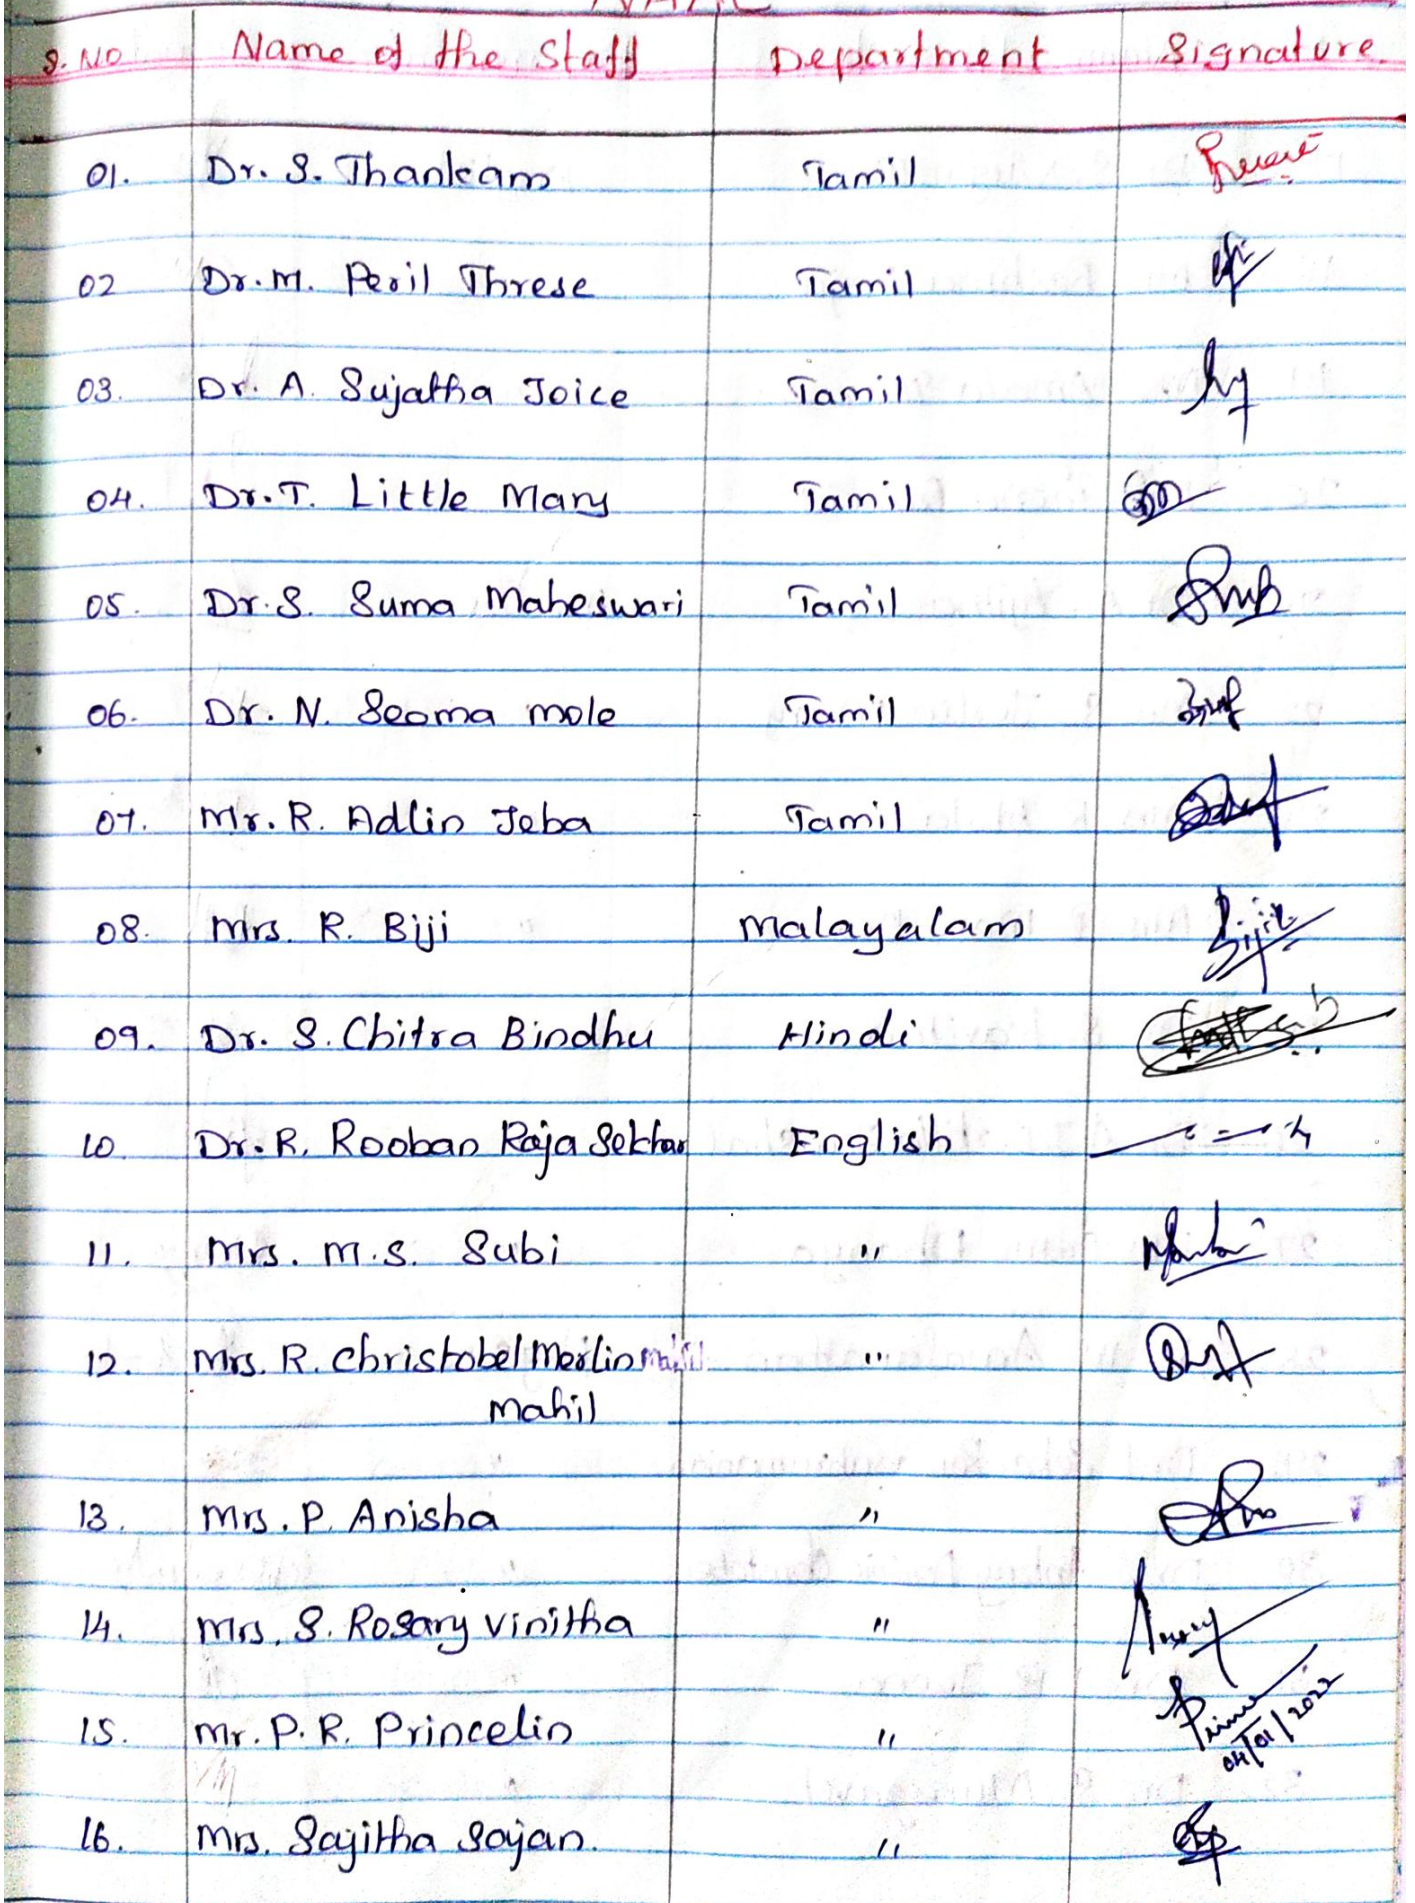 S. NO Name of the Staff Department Signature
01. Dr. S. Thankam Tamil
02 Dr. M. Peril Threse Tamil
03. Dr. A. Sujatha Joice Tamil
04. Dr. T. Little Mary Tamil
05. Dr. S. Suma Maheswari Tamil
06. Dr. N. Seoma mole Tamil
07. Mr. R. Adlin Jeba Tamil
08. Mrs. R. Biji Malayalam
09. Dr. S. Chitra Bindhu Hindi
10. Dr. R. Rooban Raja Sekhar English
11. Mrs. M.S. Subi "
12. Mrs. R. Christobel Merlin Mahil "
Mahil
13. Mrs. P. Anisha "
14. Mrs. S. Rosary Vinitha "
15. Mr. P. R. Princelin " 04/01/2022
16. Mrs. Sajitha Sajan. "